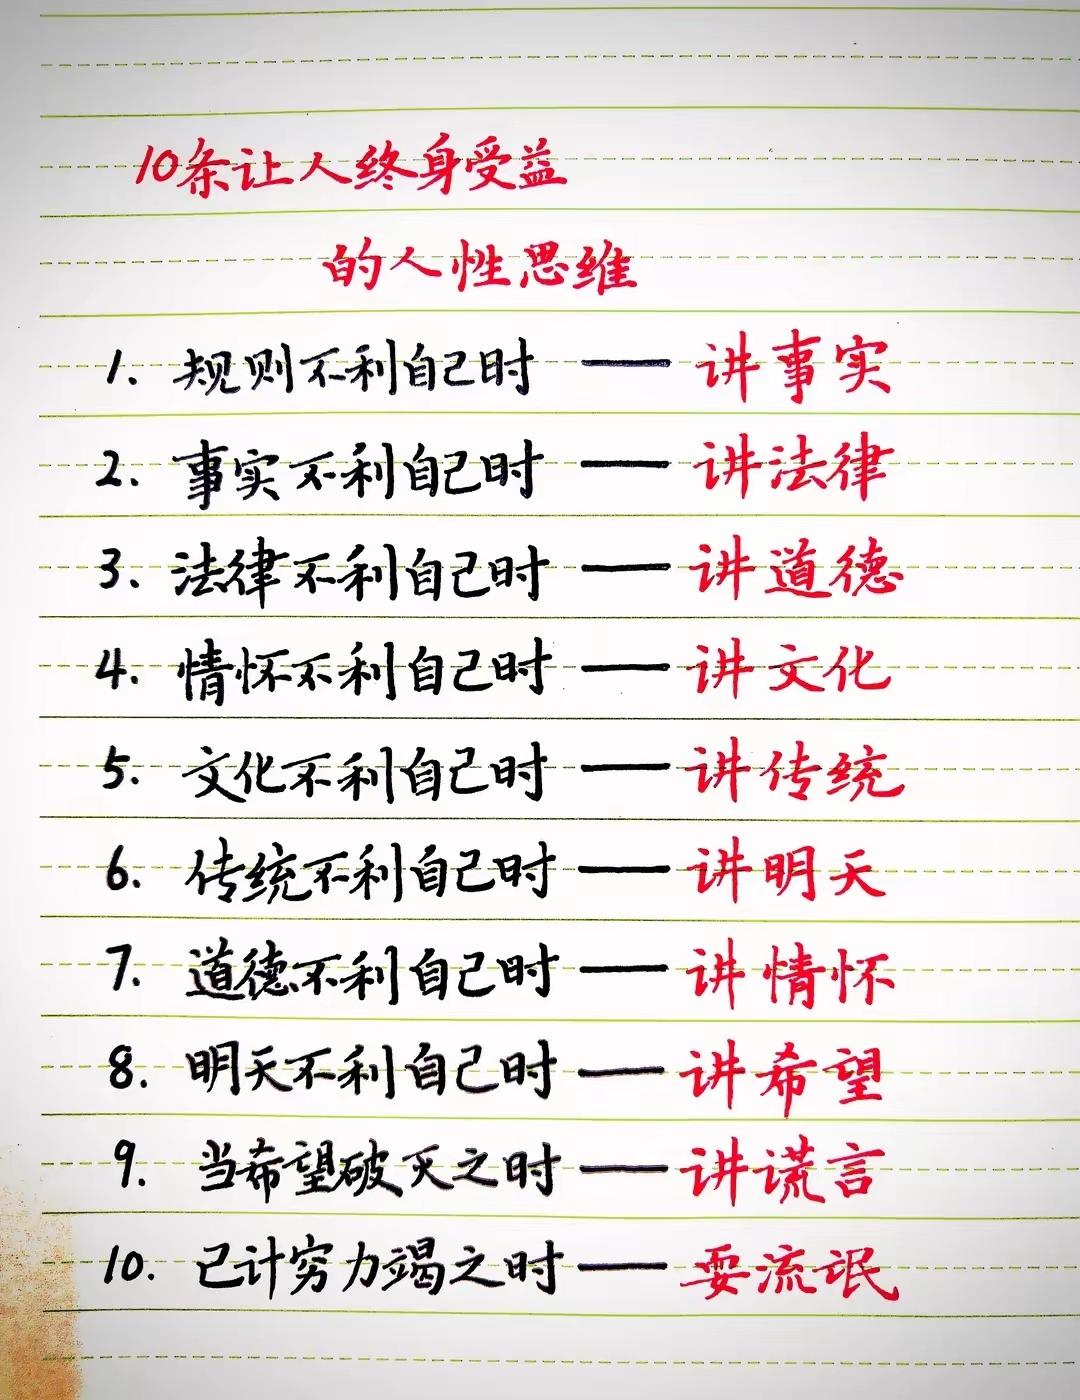 10条让人终身受益
的人性思维
1. 规则不利自己时 —— 讲事实
2. 事实不利自己时 —— 讲法律
3. 法律不利自己时 —— 讲道德
4. 情怀不利自己时 —— 讲文化
5. 文化不利自己时 —— 讲传统
6. 传统不利自己时 —— 讲明天
7. 道德不利自己时 —— 讲情怀
8. 明天不利自己时 —— 讲希望
9. 当希望破灭之时 —— 讲谎言
10. 已计穷力竭之时 —— 耍流氓